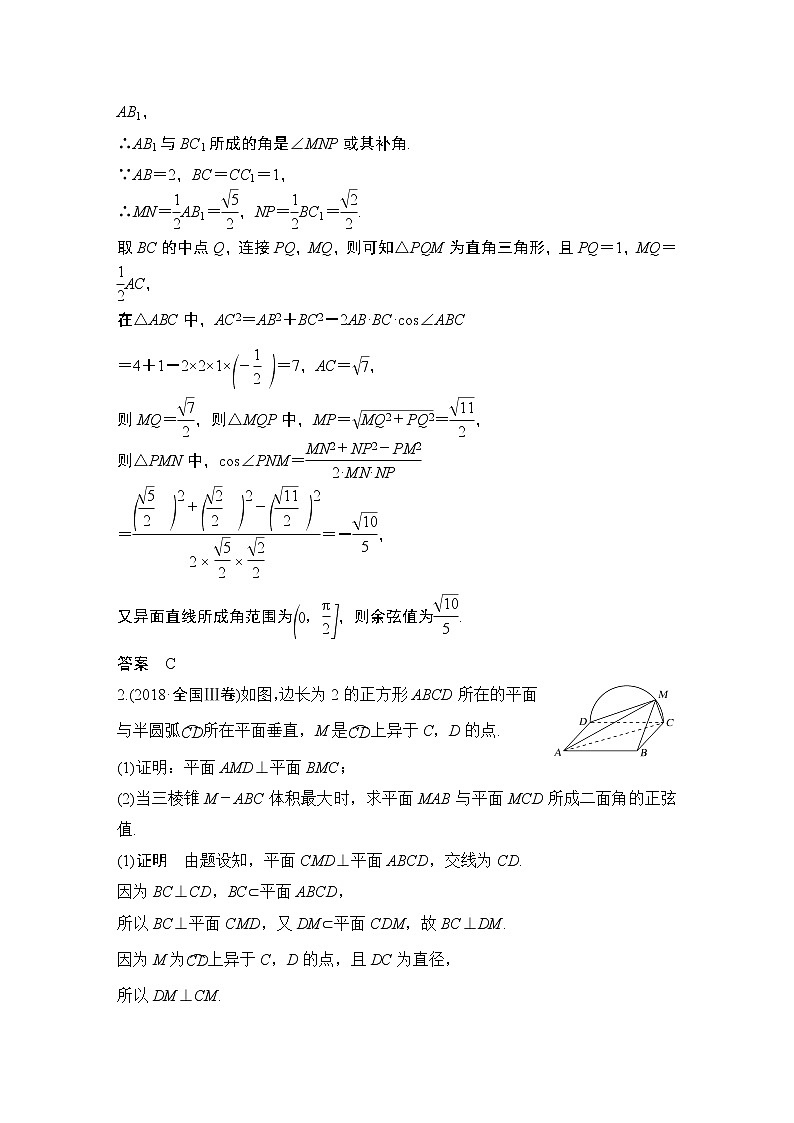 AB₁,
∴AB₁与BC₁所成的角是∠MNP或其补角.
∵AB=2，BC=CC₁=1，
∴MN=\frac{1}{2}AB₁=\frac{\sqrt{5}}{2}，NP=\frac{1}{2}BC₁=\frac{\sqrt{2}}{2}.
取BC的中点Q，连接PQ，MQ，则可知△PQM为直角三角形，且PQ=1，MQ=
\frac{1}{2}AC，
在△ABC中，AC²=AB²+BC²-2AB·BC·cos∠ABC
=4+1-2×2×1×(-\frac{1}{2})=7，AC=\sqrt{7}，
则MQ=\frac{\sqrt{7}}{2}，则△MQP中，MP=\sqrt{MQ²+PQ²}=\frac{\sqrt{11}}{2}，
则△PMN中，cos∠PNM=\frac{MN²+NP²-PM²}{2·MN·NP}
=\frac{(\frac{\sqrt{5}}{2})²+(\frac{\sqrt{2}}{2})²-(\frac{\sqrt{11}}{2})²}{2×\frac{\sqrt{5}}{2}×\frac{\sqrt{2}}{2}}=-\frac{\sqrt{10}}{5}，
又异面直线所成角范围为(0，\frac{π}{2}]，则余弦值为\frac{\sqrt{10}}{5}.
答案　C
2.(2018·全国Ⅲ卷)如图,边长为2的正方形ABCD所在的平面
与半圆弧\overset{⌒}{CD}所在平面垂直，M是\overset{⌒}{CD}上异于C，D的点.
M
D
C
A
B
(1)证明：平面AMD⊥平面BMC；
(2)当三棱锥M-ABC体积最大时，求平面MAB与平面MCD所成二面角的正弦
值.
(1)证明　由题设知，平面CMD⊥平面ABCD，交线为CD.
因为BC⊥CD，BC⊂平面ABCD，
所以BC⊥平面CMD，又DM⊂平面CDM，故BC⊥DM.
因为M为\overset{⌒}{CD}上异于C，D的点，且DC为直径，
所以DM⊥CM.